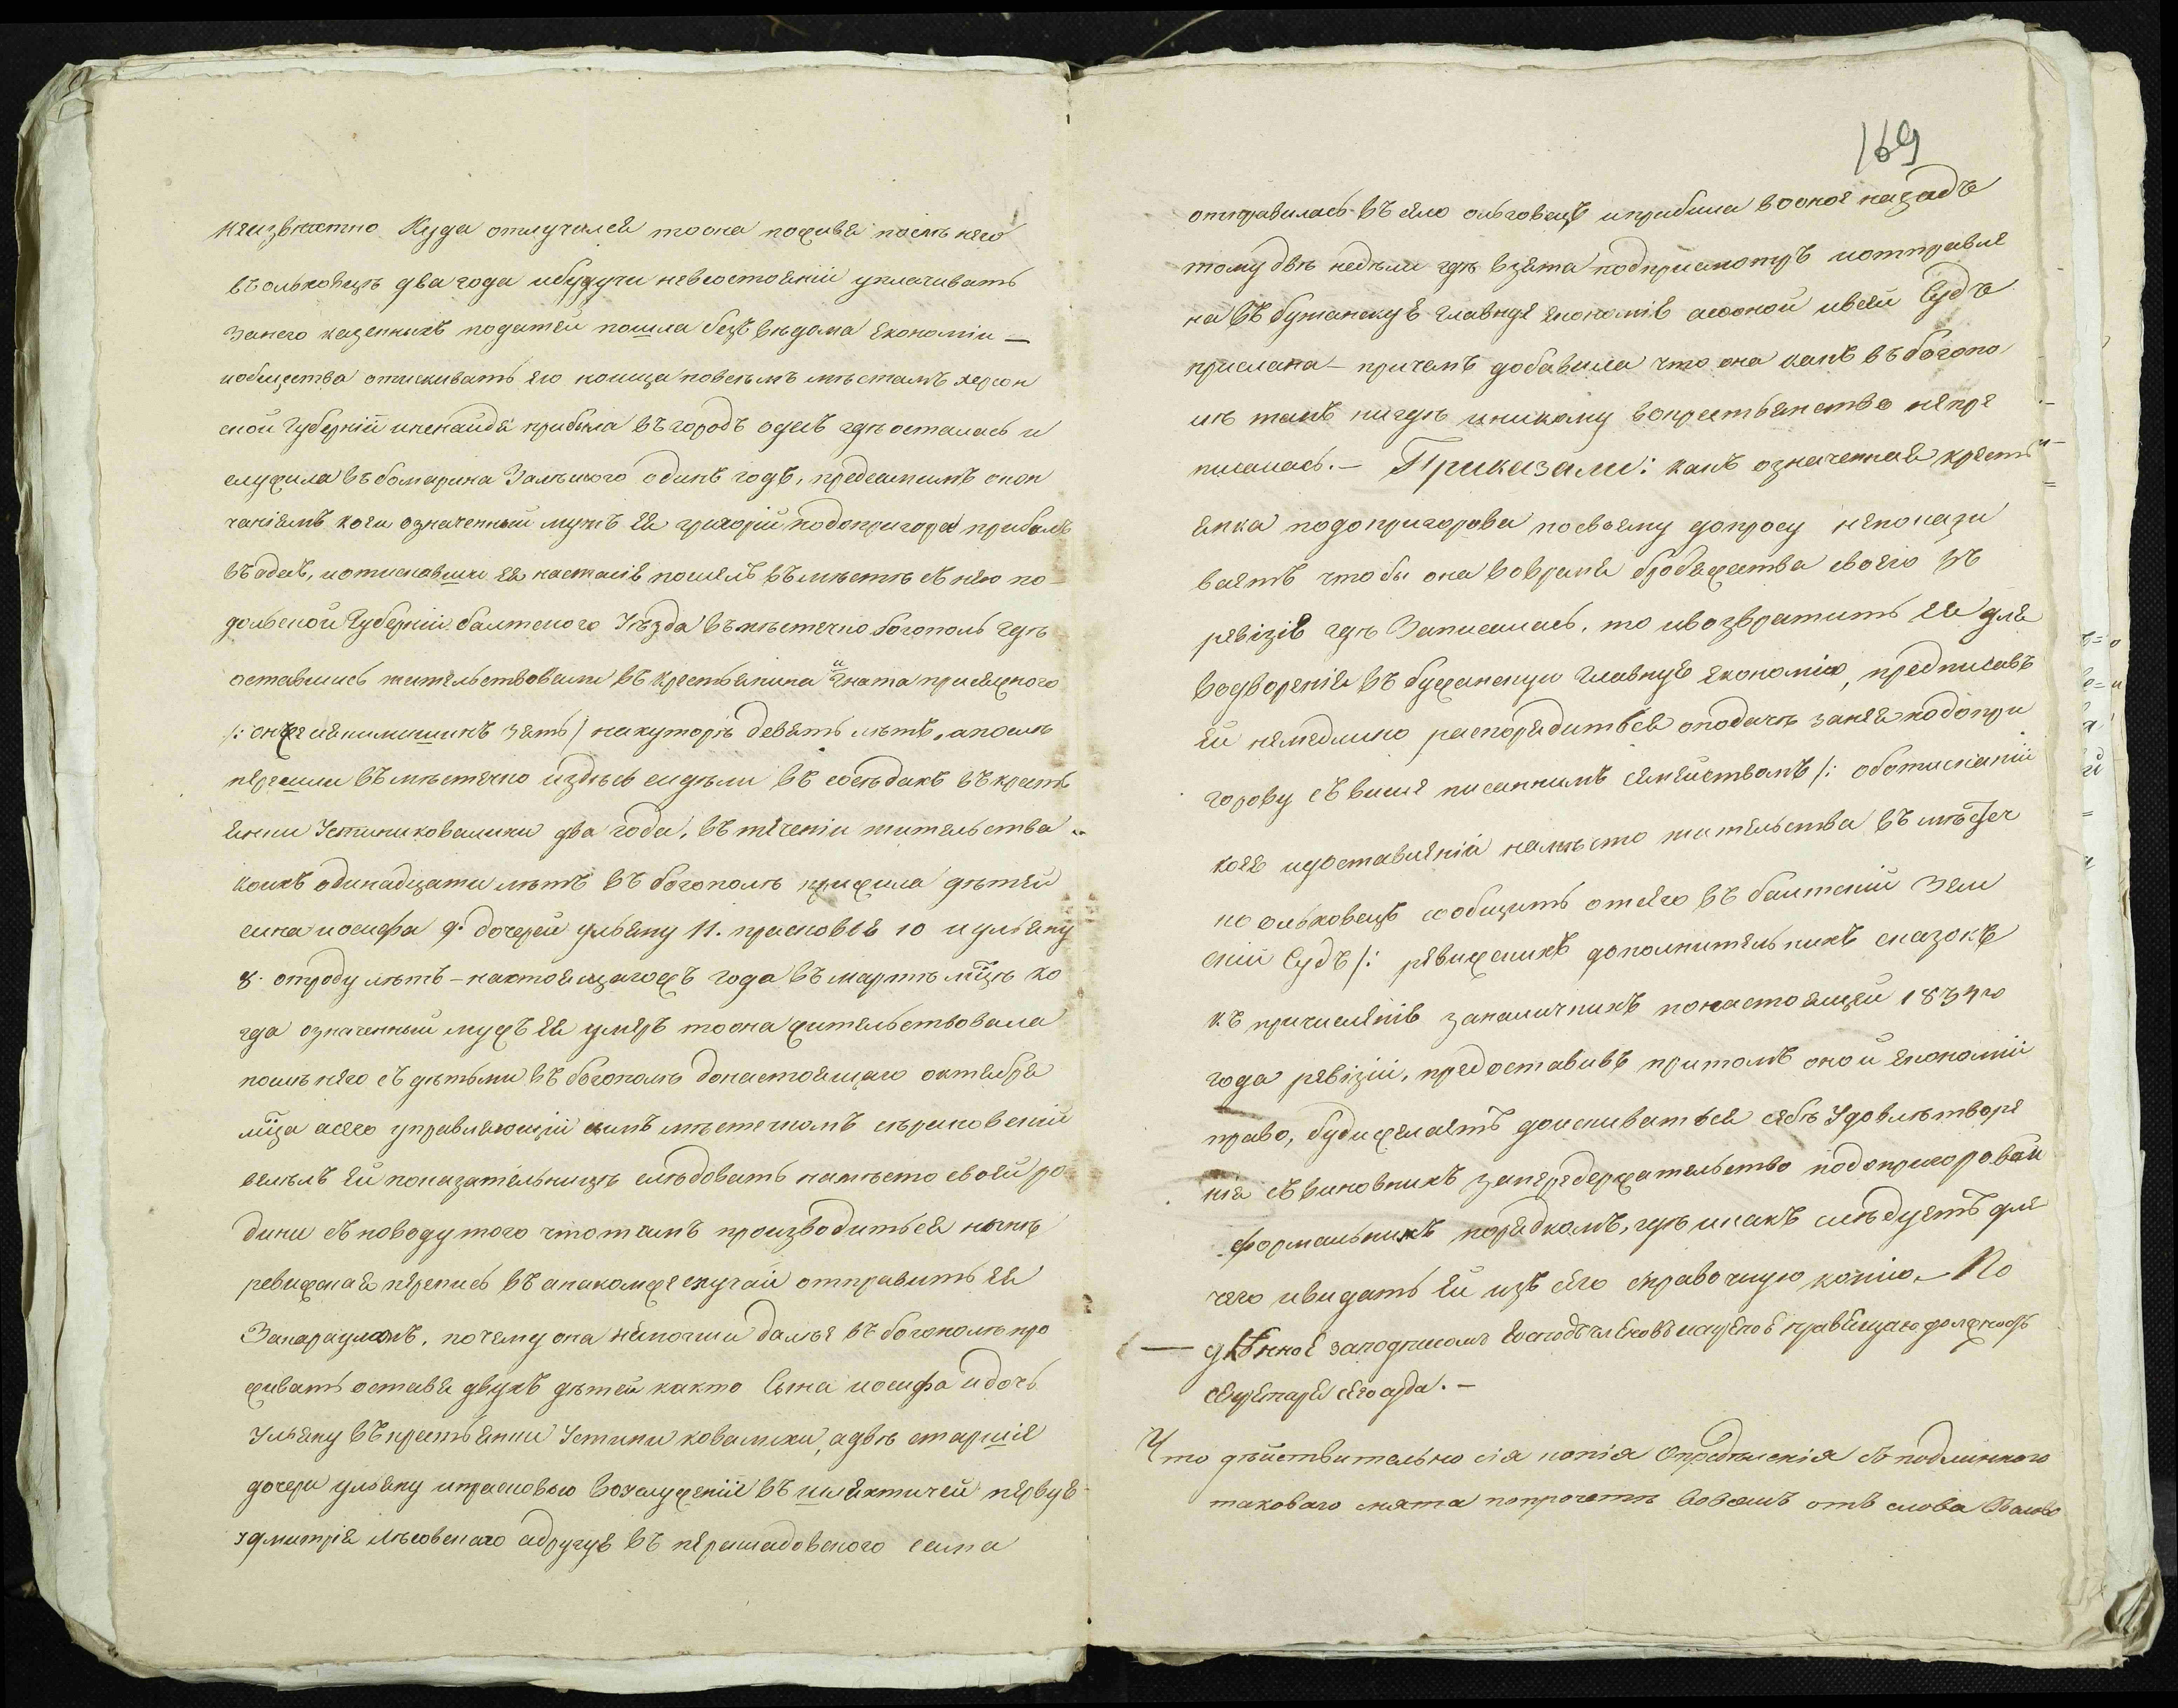 неизвестно куда отлучился то она поживя посли него
въ ольховецъ два года и будучи невсостоянїи уплачивать
занего казенныхъ податей пошла безъ вѣдома економіи —
и общества отискивать его коица повсѣмъ мѣстамъ херсон
ской Губерніи и ненайдя прибила въ городъ одесъ гдѣ осталась и
служила въ бомарина один годъ, предсамимъ окон
чаніемъ коеи означенный мужъ ея григорій подопригора прибылъ
въ одесъ, и отискавши ея настасію пошелъ въмѣстѣ съ нею по-
дольской Губерніи балтского Уѣзда въ мѣстечко богополь гдѣ
оставшись жительствовали въ крестьянина игната присяжного
зять / на хуторѣ девять лѣтъ, а послѣ
перешли въ мѣстечко издѣсь сидѣли въ сосѣдахъ въ кресть
янки Устини ковалихи два года, въ теченіи жительства
коихъ одинадцати лѣтъ въ богополѣ прижила дѣтей
сина иосифа 9. дочерей ульяну 11. прасковью 10 и ульяну
8. отроду лѣтъ — настоящагожъ года въ мартѣ мцѣ ко
гда означенный мужъ ея умеръ то она жительствовала
послѣ него съ дѣтьми въ богополѣ до настоящаго октября
мца а сего управляющій симъ мѣстечкомъ
велѣлъ ей показательницѣ слѣдовать намѣсто своей ро
дини съ поводу того что тамъ производиться нынѣ
ревижская перепись въ анакомже случаи отправить ея
Закарауломъ, почему она немогши далѣе въ богополѣ про
живать оставя двухъ дѣтей както сына иосифа и дочь
Ульяну въ крестьянки Устини ковалихи, а двѣ старшіе
дочери ульяну и прасковью вослуженіе въ шляхтичей первую
удмитрія лѣсовского а другую въ перешадовского сама
169
отправилась въ село ольховецъ и прибила воокое назадъ
тому двѣ недѣли гдѣ взята подприсмотръ и отправле
на въ бужанскую главную економію а со оной и всей Судъ
прислана — причемъ добавила что она какъ въ богопо
лѣ такъ нигдѣ и никому вокрестьянство непре
писалась. — Приказали: какъ означенная кресть
янка подопригорова по своему допросу непокази
ваетъ чтобы она вовремя бродяжества своего въ
ревізію гдѣ записалась, то и возвратить ея для
водворенія въ бужанскую главную економію, предписавъ
ей немедлино распорядиться оподачѣ занея подопри
горову съ више писаннимъ семействамъ /: оботисканіи
коея и доставленіи намѣсто жительства въ мѣстеч
ко ольховецъ сообщить отсего въ балтскій Зем
скій Судъ /: ревижскихъ дополнительнихъ сказокъ
къ причисленію заналичнихъ понастоящей 1834го
года ревізіи, предоставивъ притомъ оной економіи
право, буди желаетъ доискиваться себѣ Удовлѣтворе
нія съ виновнихъ запередержательство подопригоровой
формальнимъ порядкомъ, гдѣ и какъ слѣдуетъ для
чего и видать ей изъ сего справочную копію. — По
длинное заподписомъ Господъ членовъ правящаго должность
секретаря сего суда. —
Что дѣйствительно сія копія опредѣленія съ подлинного
таковаго снята попрочетѣ вовсемъ отъ слова въ слово